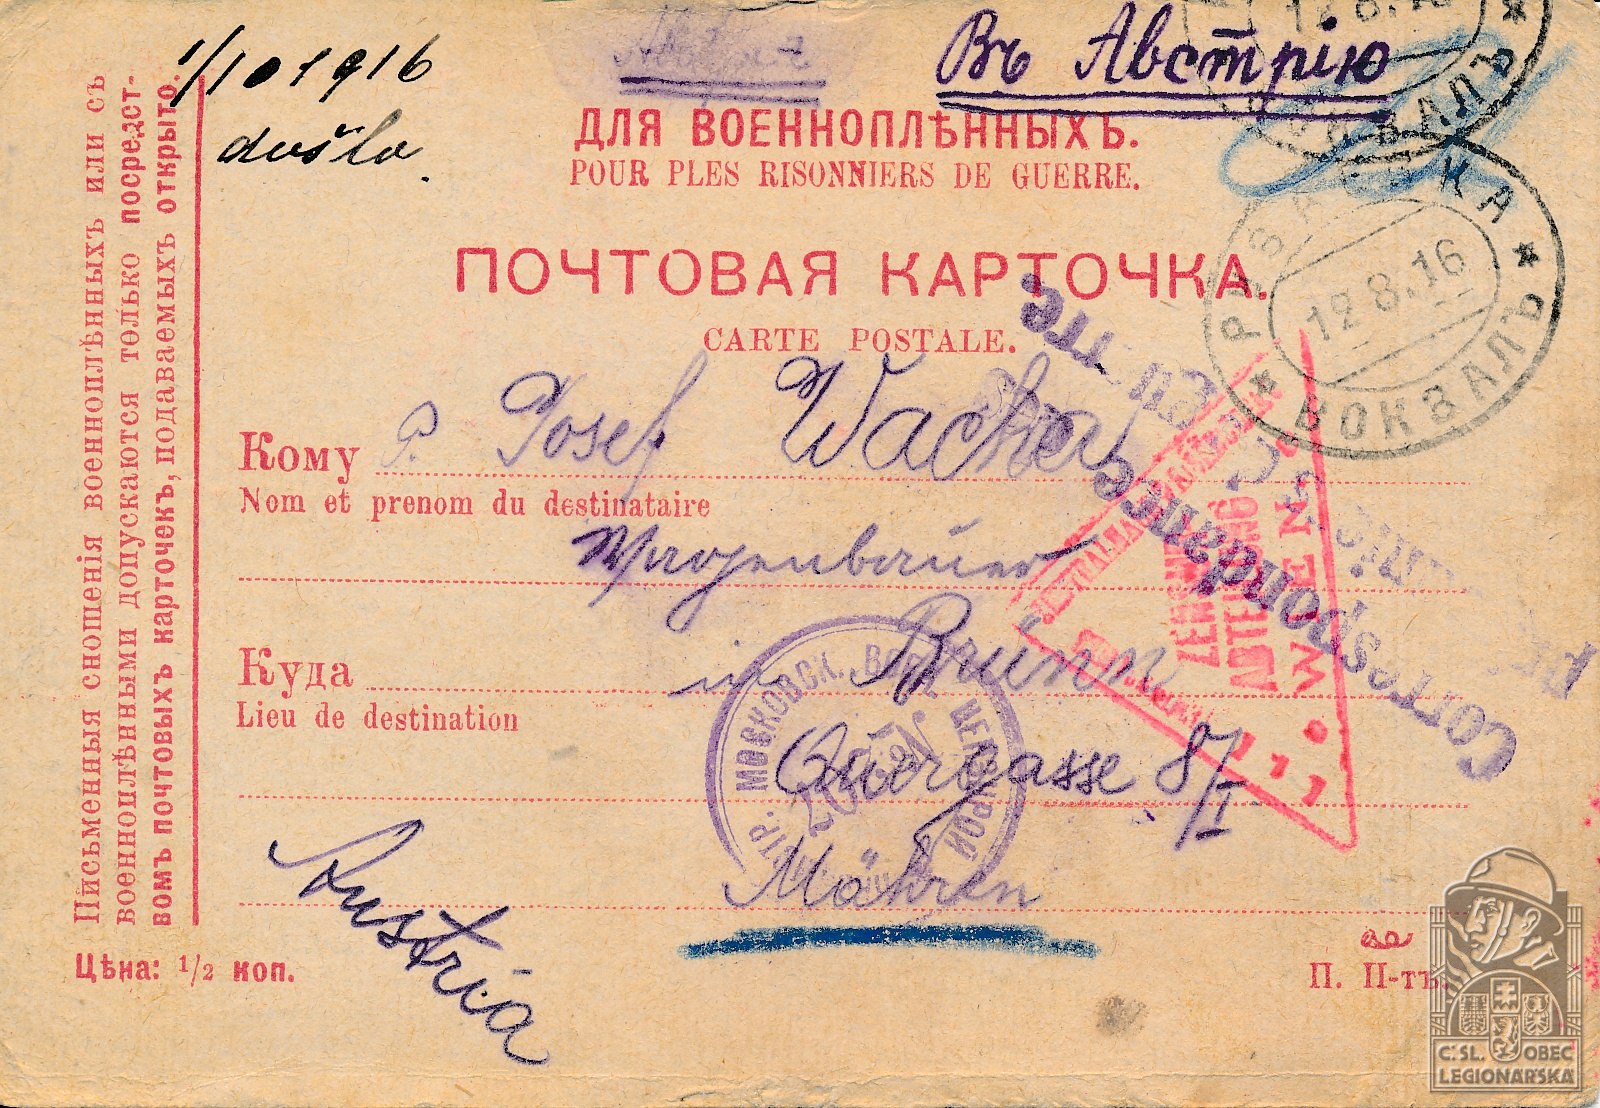 1/10 1916
došlo.
Въ Австрію
ДЛЯ ВОЕННОПЛѢННЫХЪ.
POUR PLES RISONNIERS DE GUERRE.
ПОЧТОВАЯ КАРТОЧКА.
CARTE POSTALE.
Кому P. Josef Wacha
Nom et prenom du destinataire
Куда in Brünn
Lieu de destination
Quergasse 8/I
Mähren
Austria
Письменныя сношенія военноплѣнныхъ или съ
военноплѣнными допускаются только посредст-
вомъ почтовыхъ карточекъ, подаваемыхъ открыто.
Цѣна: 1/2 коп.
П. П-тъ.
РУЗАЕВКА
12 8.16
ВОКЗАЛЪ
12.8.16
ВОКЗАЛЪ
Correspondance
ZENSUR
ABTEILUNG
WIEN
МОСКОВСК. ВОЕН. ЦЕНЗУРОЙ
Č.SL. OBEC
LEGIONÁŘSKÁ